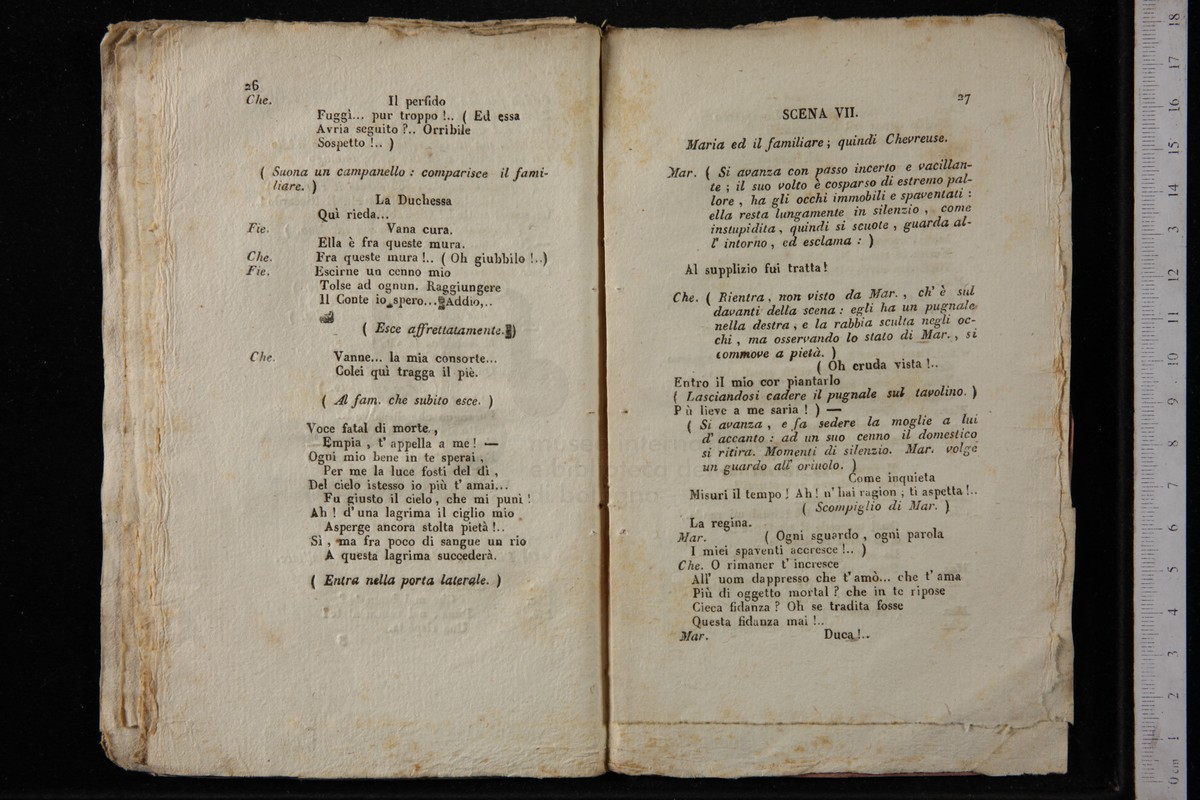 26
Che. Il perfido
Fuggì... pur troppo !.. ( Ed essa
Avria seguito ?.. Orribile
Sospetto !.. )
( Suona un campanello : comparisce il fami-
liare. )
La Duchessa
Quì rieda...
Fie. Vana cura.
Ella è fra queste mura.
Che. Fra queste mura !.. ( Oh giubbilo !..)
Fie. Escirne un cenno mio
Tolse ad ognun. Raggiungere
Il Conte io spero... Addio,..
( Esce affrettatamente. )
Che. Vanne... la mia consorte...
Colei quì tragga il piè.
( Al fam. che subito esce. )
Voce fatal di morte ,
Empia , t' appella a me ! —
Ogni mio bene in te sperai ,
Per me la luce fosti del dì ,
Del cielo istesso io più t' amai...
Fu giusto il cielo , che mi punì !
Ah ! d' una lagrima il ciglio mio
Asperge ancora stolta pietà !..
Sì , ma fra poco di sangue un rio
A questa lagrima succederà.
( Entra nella porta laterale. )
27
SCENA VII.
Maria ed il familiare ; quindi Chevreuse.
Mar. ( Si avanza con passo incerto e vacillan-
te ; il suo volto è cosparso di estremo pal-
lore , ha gli occhi immobili e spaventati :
ella resta lungamente in silenzio , come
instupidita , quindi si scuote , guarda al-
l' intorno , ed esclama : )
Al supplizio fui tratta !
Che. ( Rientra , non visto da Mar. , ch' è sul
davanti della scena : egli ha un pugnale
nella destra , e la rabbia sculta negli oc-
chi , ma osservando lo stato di Mar. , si
commove a pietà. )
( Oh cruda vista !..
Entro il mio cor piantarlo
( Lasciandosi cadere il pugnale sul tavolino. )
P ù lieve a me saria ! ) —
( Si avanza , e fa sedere la moglie a lui
d' accanto : ad un suo cenno il domestico
si ritira. Momenti di silenzio. Mar. volge
un guardo all' oriuolo. )
Come inquieta
Misuri il tempo ! Ah ! n' hai ragion ; ti aspetta !..
( Scompiglio di Mar. )
La regina.
Mar. ( Ogni sguardo , ogni parola
I miei spaventi accresce !.. )
Che. O rimaner t' incresce
All' uom dappresso che t' amò... che t' ama
Più di oggetto mortal ? che in te ripose
Cieca fidanza ? Oh se tradita fosse
Questa fidanza mai !..
Mar. Duca !..